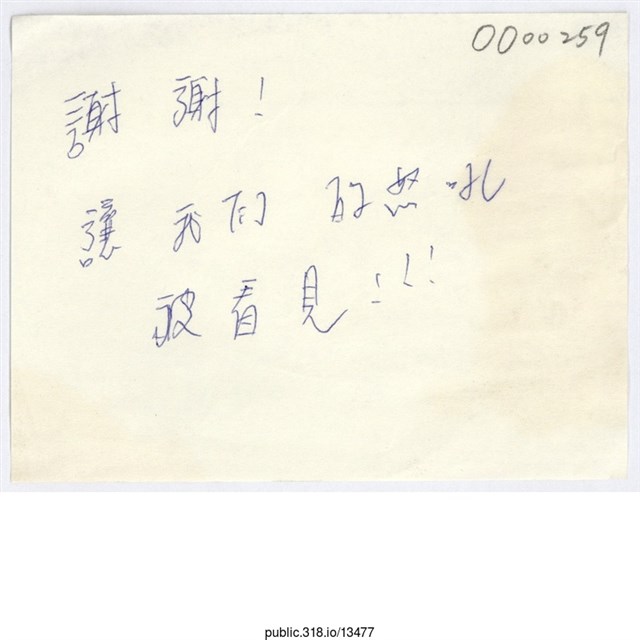 0000259
謝謝!
讓我們的怒吼
被看見!!!
public.318.io/13477